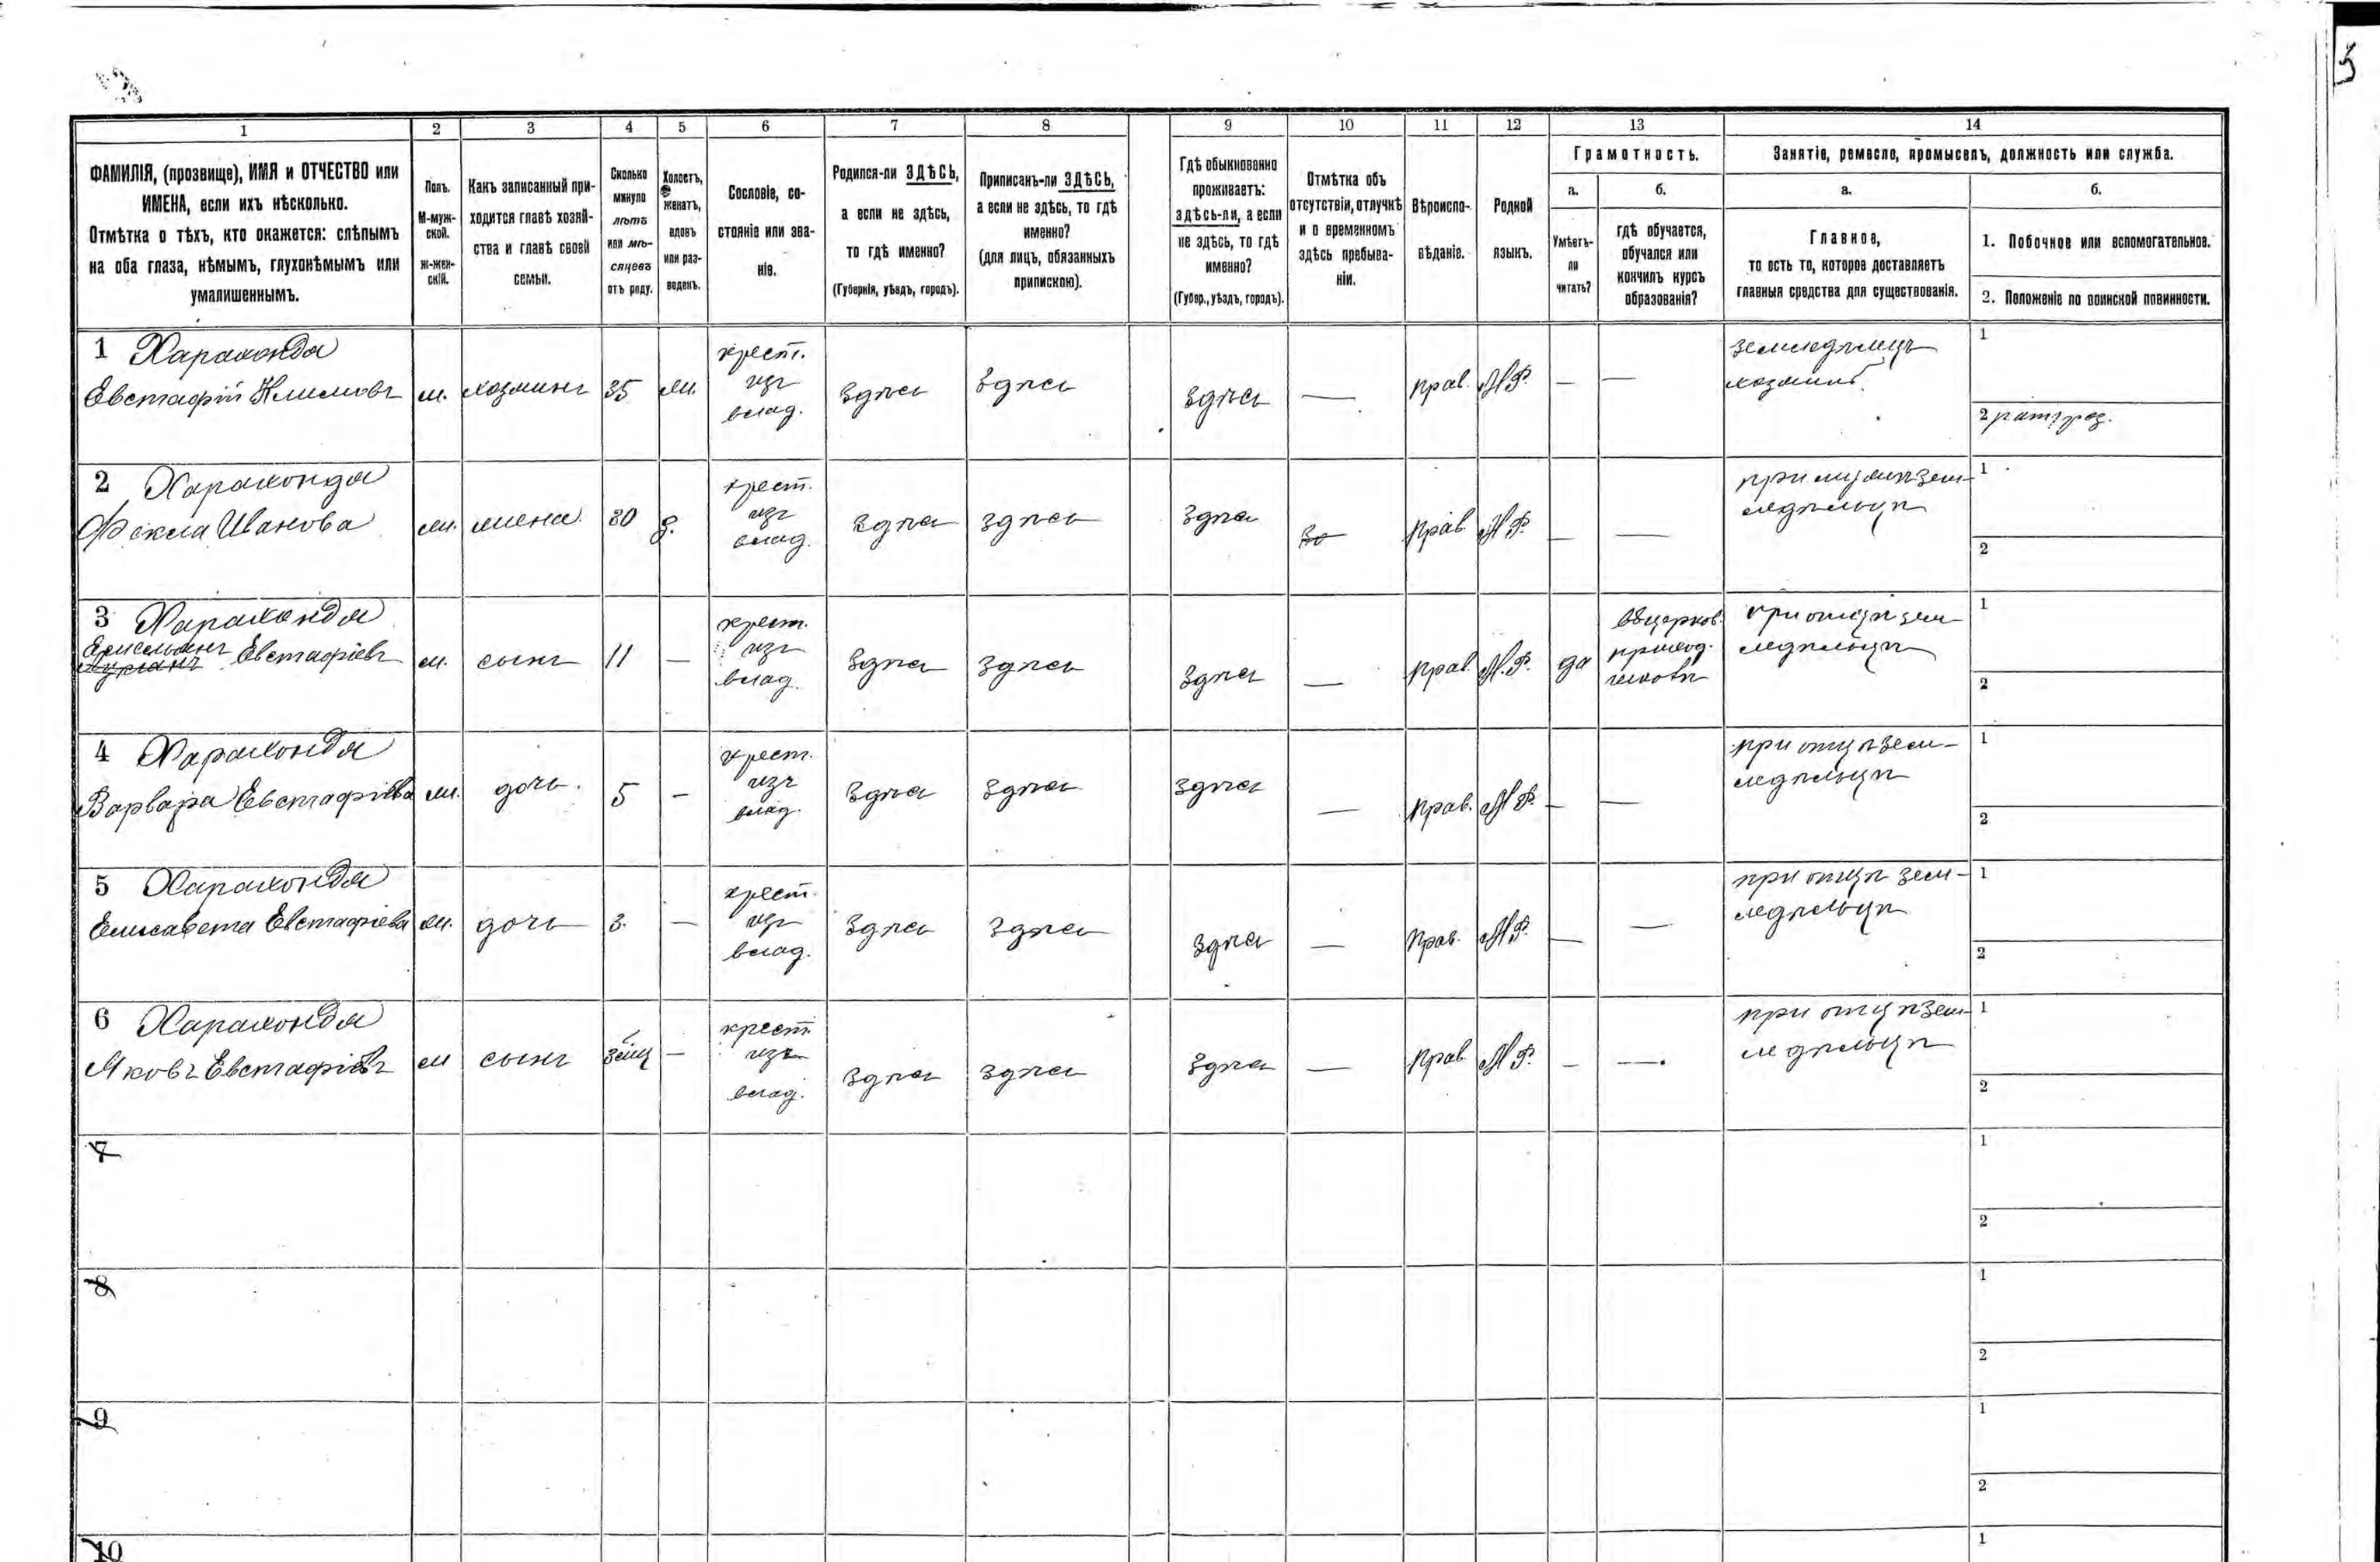 5
1 2 3 4 5 6 7 8 9 10 11 12 13 14
ФАМИЛІЯ, (прозвище), ИМЯ и ОТЧЕСТВО или
ИМЕНА, если ихъ нѣсколько.
Отмѣтка о тѣхъ, кто окажется: слѣпымъ
на оба глаза, нѣмымъ, глухонѣмымъ или
умалишеннымъ.
Полъ.
М-муж-
ской.
Ж-жен-
скій.
Какъ записанный при-
ходится главѣ хозяй-
ства и главѣ своей
семьи.
Сколько
минуло
лѣтъ
или мѣ-
сяцевъ
отъ роду.
Холостъ,
женатъ,
вдовъ
или раз-
веденъ.
Сословіе, со-
стояніе или зва-
ніе.
Родился-ли ЗДѢСЬ,
а если не здѣсь,
то гдѣ именно?
(Губернія, уѣздъ, городъ).
Приписанъ-ли ЗДѢСЬ,
а если не здѣсь, то гдѣ
именно?
(для лицъ, обязанныхъ
припискою).
Гдѣ обыкновенно
проживаетъ:
здѣсь-ли, а если
не здѣсь, то гдѣ
именно?
(Губер., уѣздъ, городъ).
Отмѣтка объ
отсутствіи, отлучкѣ
и о временномъ
здѣсь пребыва-
ніи.
Вѣроиспо-
вѣданіе.
Родной
языкъ.
Грамотность.
а.
Умѣетъ-
ли
читать?
б.
гдѣ обучается,
обучался или
кончилъ курсъ
образованія?
Занятіе, ремесло, промыселъ, должность или служба.
а.
Главное,
то есть то, которое доставляетъ
главныя средства для существованія.
б.
1. Побочное или вспомогательное.
2. Положеніе по воинской повинности.
1 Харахонда
Евстафій Климовъ
м.
хозяинъ
35
ж.
крест.
изъ
влад.
Здѣсь
Здѣсь
Здѣсь
—
Прав.
М.Р.
—
—
земледѣлецъ
хозяинъ
1
2 рат. 1 раз.
2 Харахонда
Фекла Иванова
ж.
жена
30
з.
крест.
изъ
влад.
Здѣсь
здѣсь
Здѣсь
Прав.
М.Р.
—
—
при мужѣ зем-
ледѣльцѣ
1
2
3 Харахонда
Емельянъ Евстафіевъ
м.
сынъ
11
—
крест.
изъ
влад.
Здѣсь
Здѣсь
Здѣсь
—
Прав.
М.Р.
да
въ церков.
приход.
школѣ
при отцѣ зем-
ледѣльцѣ
1
2
4 Харахонда
Варвара Евстафіева
ж.
дочь.
5
—
крест.
изъ
влад.
Здѣсь
Здѣсь
Здѣсь
—
Прав.
М.Р.
—
—
при отцѣ зем-
ледѣльцѣ
1
2
5 Харахонда
Елисавета Евстафіева
ж.
дочь
3.
—
крест.
изъ
влад.
Здѣсь
Здѣсь
Здѣсь
—
Прав.
М.Р.
—
—
при отцѣ зем-
ледѣльцѣ
1
2
6 Харахонда
Яковъ Евстафіевъ
м
сынъ
—
крест.
изъ
влад.
Здѣсь
Здѣсь
Здѣсь
—
Прав.
М.Р.
—
—
при отцѣ зем-
ледѣльцѣ
1
2
7
1
2
8
1
2
9
1
2
10
1